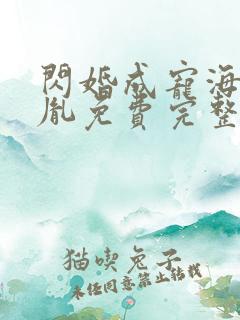 閃婚成寵海
胤免費完整
猫喫兔子
未経同意禁止転載